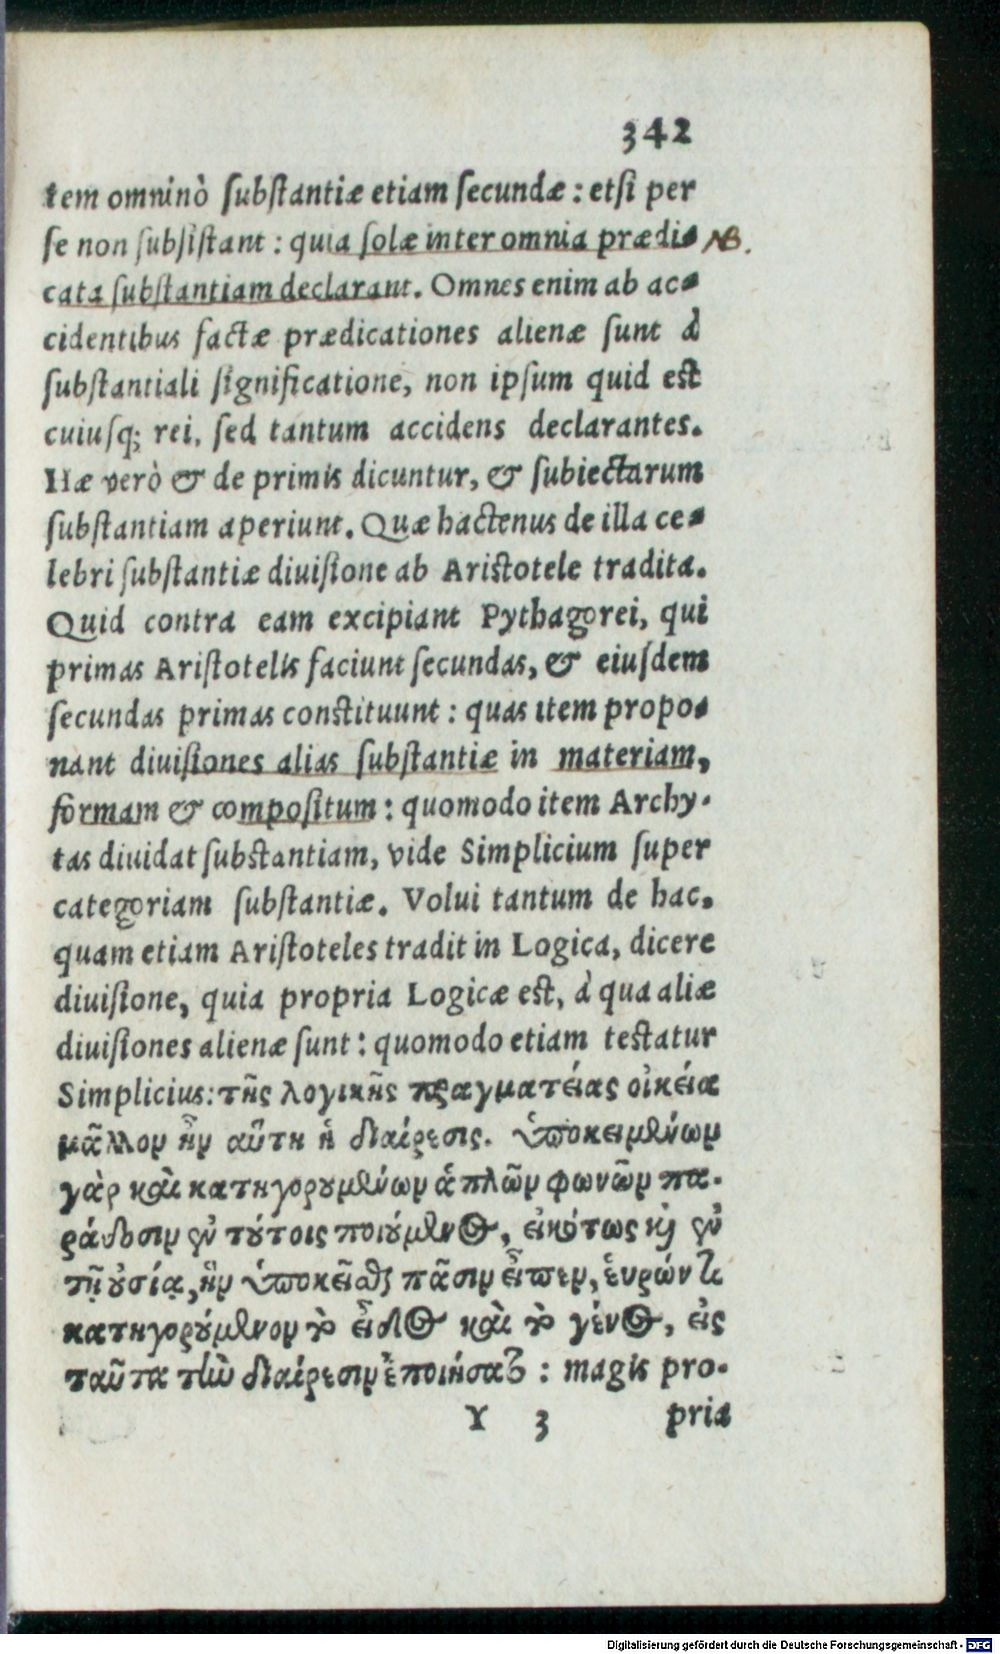 342
tem omninò substantiæ etiam secundæ : etsi per
se non subsistant : quia solæ inter omnia prædi- NB.
cata substantiam declarant. Omnes enim ab ac-
cidentibus factæ prædicationes alienæ sunt à
substantiali significatione, non ipsum quid est
cuiusq; rei, sed tantum accidens declarantes.
Hæ verò & de primis dicuntur, & subiectarum
substantiam aperiunt. Quæ hactenus de illa ce-
lebri substantiæ diuisione ab Aristotele tradita.
Quid contra eam excipiant Pythagorei, qui
primas Aristotelis faciunt secundas, & eiusdem
secundas primas constituunt : quas item propo-
nant diuisiones alias substantiæ in materiam,
formam & compositum : quomodo item Archy-
tas diuidat substantiam, vide Simplicium super
categoriam substantiæ. Volui tantum de hac.
quam etiam Aristoteles tradit in Logica, dicere
diuisione, quia propria Logicæ est, à qua aliæ
diuisiones alienæ sunt : quomodo etiam testatur
Simplicius: τῆς λογικῆς πραγματείας οἰκεία
μᾶλλον ἦν αὕτη ἡ διαίρεσις. ὑποκειμένων
γὰρ καὶ κατηγορουμένων ἁπλῶν φωνῶν πα-
ράδοσιν ἐν τούτοις ποιούμενος, εἰκότως καὶ ἐν
τῇ οὐσίᾳ, ἣν ὑποκεῖσθαι πᾶσιν εἶπεν, εὑρών τε
κατηγορούμενον τὸ εἶδος καὶ τὸ γένος, εἰς
ταῦτα τὴν διαίρεσιν ἐποιήσατο : magis pro-
Y 3 pria
Digitalisierung gefördert durch die Deutsche Forschungsgemeinschaft - DFG